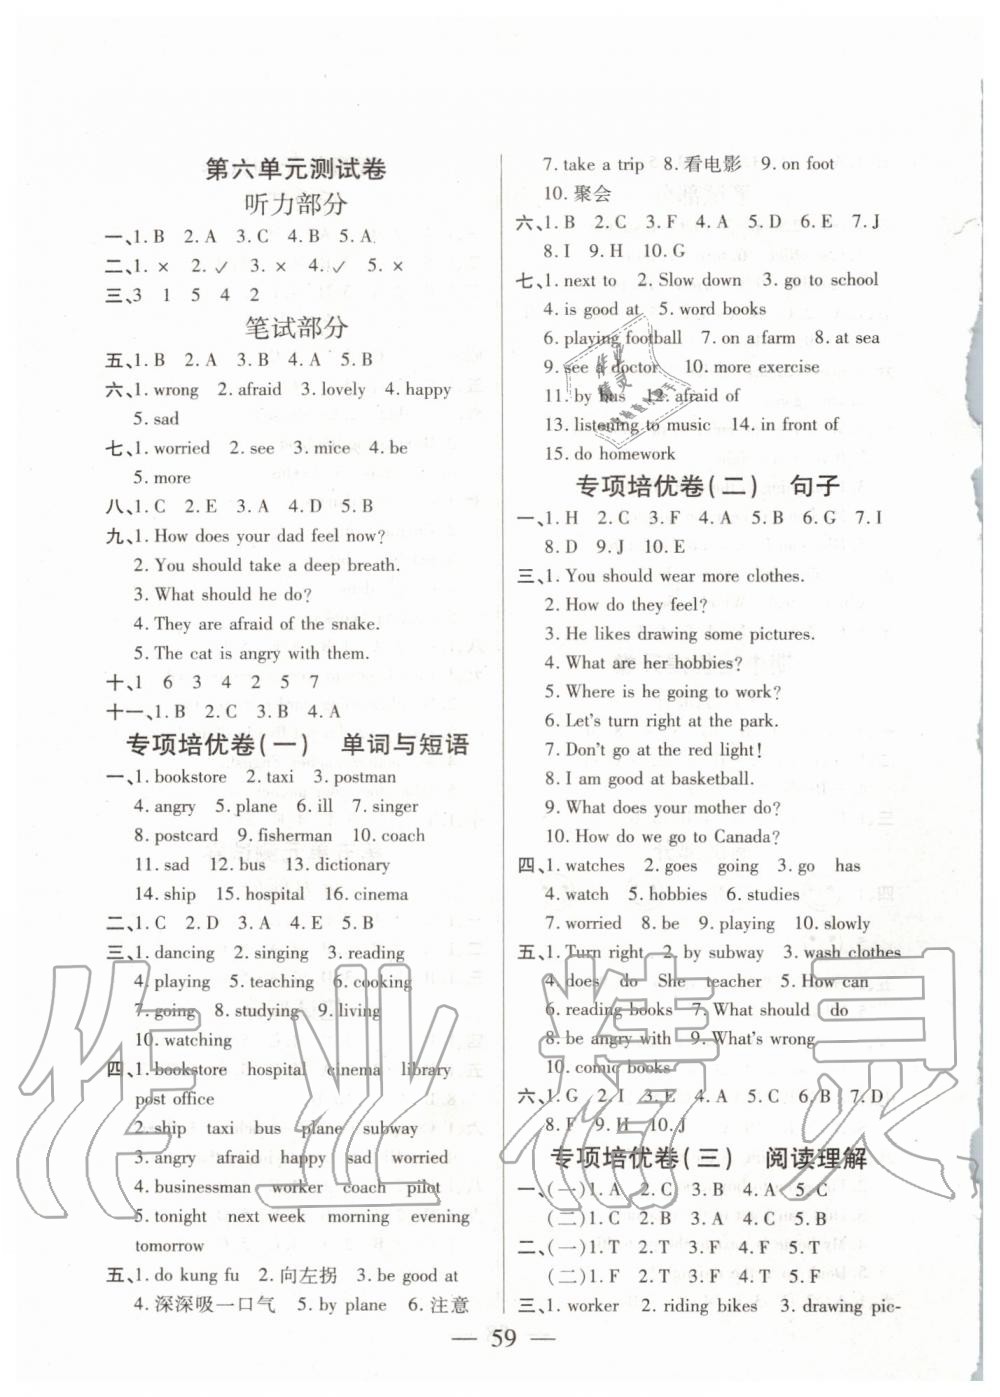 第六单元测试卷
听力部分
一、1. B 2. A 3. C 4. B 5. A
二、1. × 2. ✓ 3. × 4. ✓ 5. ×
三、3 1 5 4 2
笔试部分
五、1. B 2. A 3. B 4. A 5. B
六、1. wrong 2. afraid 3. lovely 4. happy
5. sad
七、1. worried 2. see 3. mice 4. be
5. more
八、1. C 2. E 3. A 4. D 5. B
九、1. How does your dad feel now?
2. You should take a deep breath.
3. What should he do?
4. They are afraid of the snake.
5. The cat is angry with them.
十、1 6 3 4 2 5 7
十一、1. B 2. C 3. B 4. A
专项培优卷(一) 单词与短语
一、1. bookstore 2. taxi 3. postman
4. angry 5. plane 6. ill 7. singer
8. postcard 9. fisherman 10. coach
11. sad 12. bus 13. dictionary
14. ship 15. hospital 16. cinema
二、1. C 2. D 3. A 4. E 5. B
三、1. dancing 2. singing 3. reading
4. playing 5. teaching 6. cooking
7. going 8. studying 9. living
10. watching
四、1. bookstore hospital cinema library
post office
2. ship taxi bus plane subway
3. angry afraid happy sad worried
4. businessman worker coach pilot
5. tonight next week morning evening
tomorrow
五、1. do kung fu 2. 向左拐 3. be good at
4. 深深吸一口气 5. by plane 6. 注意
7. take a trip 8. 看电影 9. on foot
10. 聚会
六、1. B 2. C 3. F 4. A 5. D 6. E 7. J
8. I 9. H 10. G
七、1. next to 2. Slow down 3. go to school
4. is good at 5. word books
6. playing football 7. on a farm 8. at sea
9. see a doctor 10. more exercise
11. by bus 12. afraid of
13. listening to music 14. in front of
15. do homework
专项培优卷(二) 句子
一、1. H 2. C 3. F 4. A 5. B 6. G 7. I
8. D 9. J 10. E
三、1. You should wear more clothes.
2. How do they feel?
3. He likes drawing some pictures.
4. What are her hobbies?
5. Where is he going to work?
6. Let's turn right at the park.
7. Don't go at the red light!
8. I am good at basketball.
9. What does your mother do?
10. How do we go to Canada?
四、1. watches 2. goes going 3. go has
4. watch 5. hobbies 6. studies
7. worried 8. be 9. playing 10. slowly
五、1. Turn right 2. by subway 3. wash clothes
4. does do She teacher 5. How can
6. reading books 7. What should do
8. be angry with 9. What's wrong
10. comic books
六、1. G 2. I 3. E 4. A 5. C 6. B 7. D
8. F 9. H 10. J
专项培优卷(三) 阅读理解
一、(一)1. A 2. C 3. B 4. A 5. C
(二)1. C 2. B 3. A 4. C 5. B
二、(一)1. T 2. T 3. F 4. F 5. T
(二)1. F 2. T 3. F 4. T 5. F
三、1. worker 2. riding bikes 3. drawing pic-
— 59 —
作业精灵